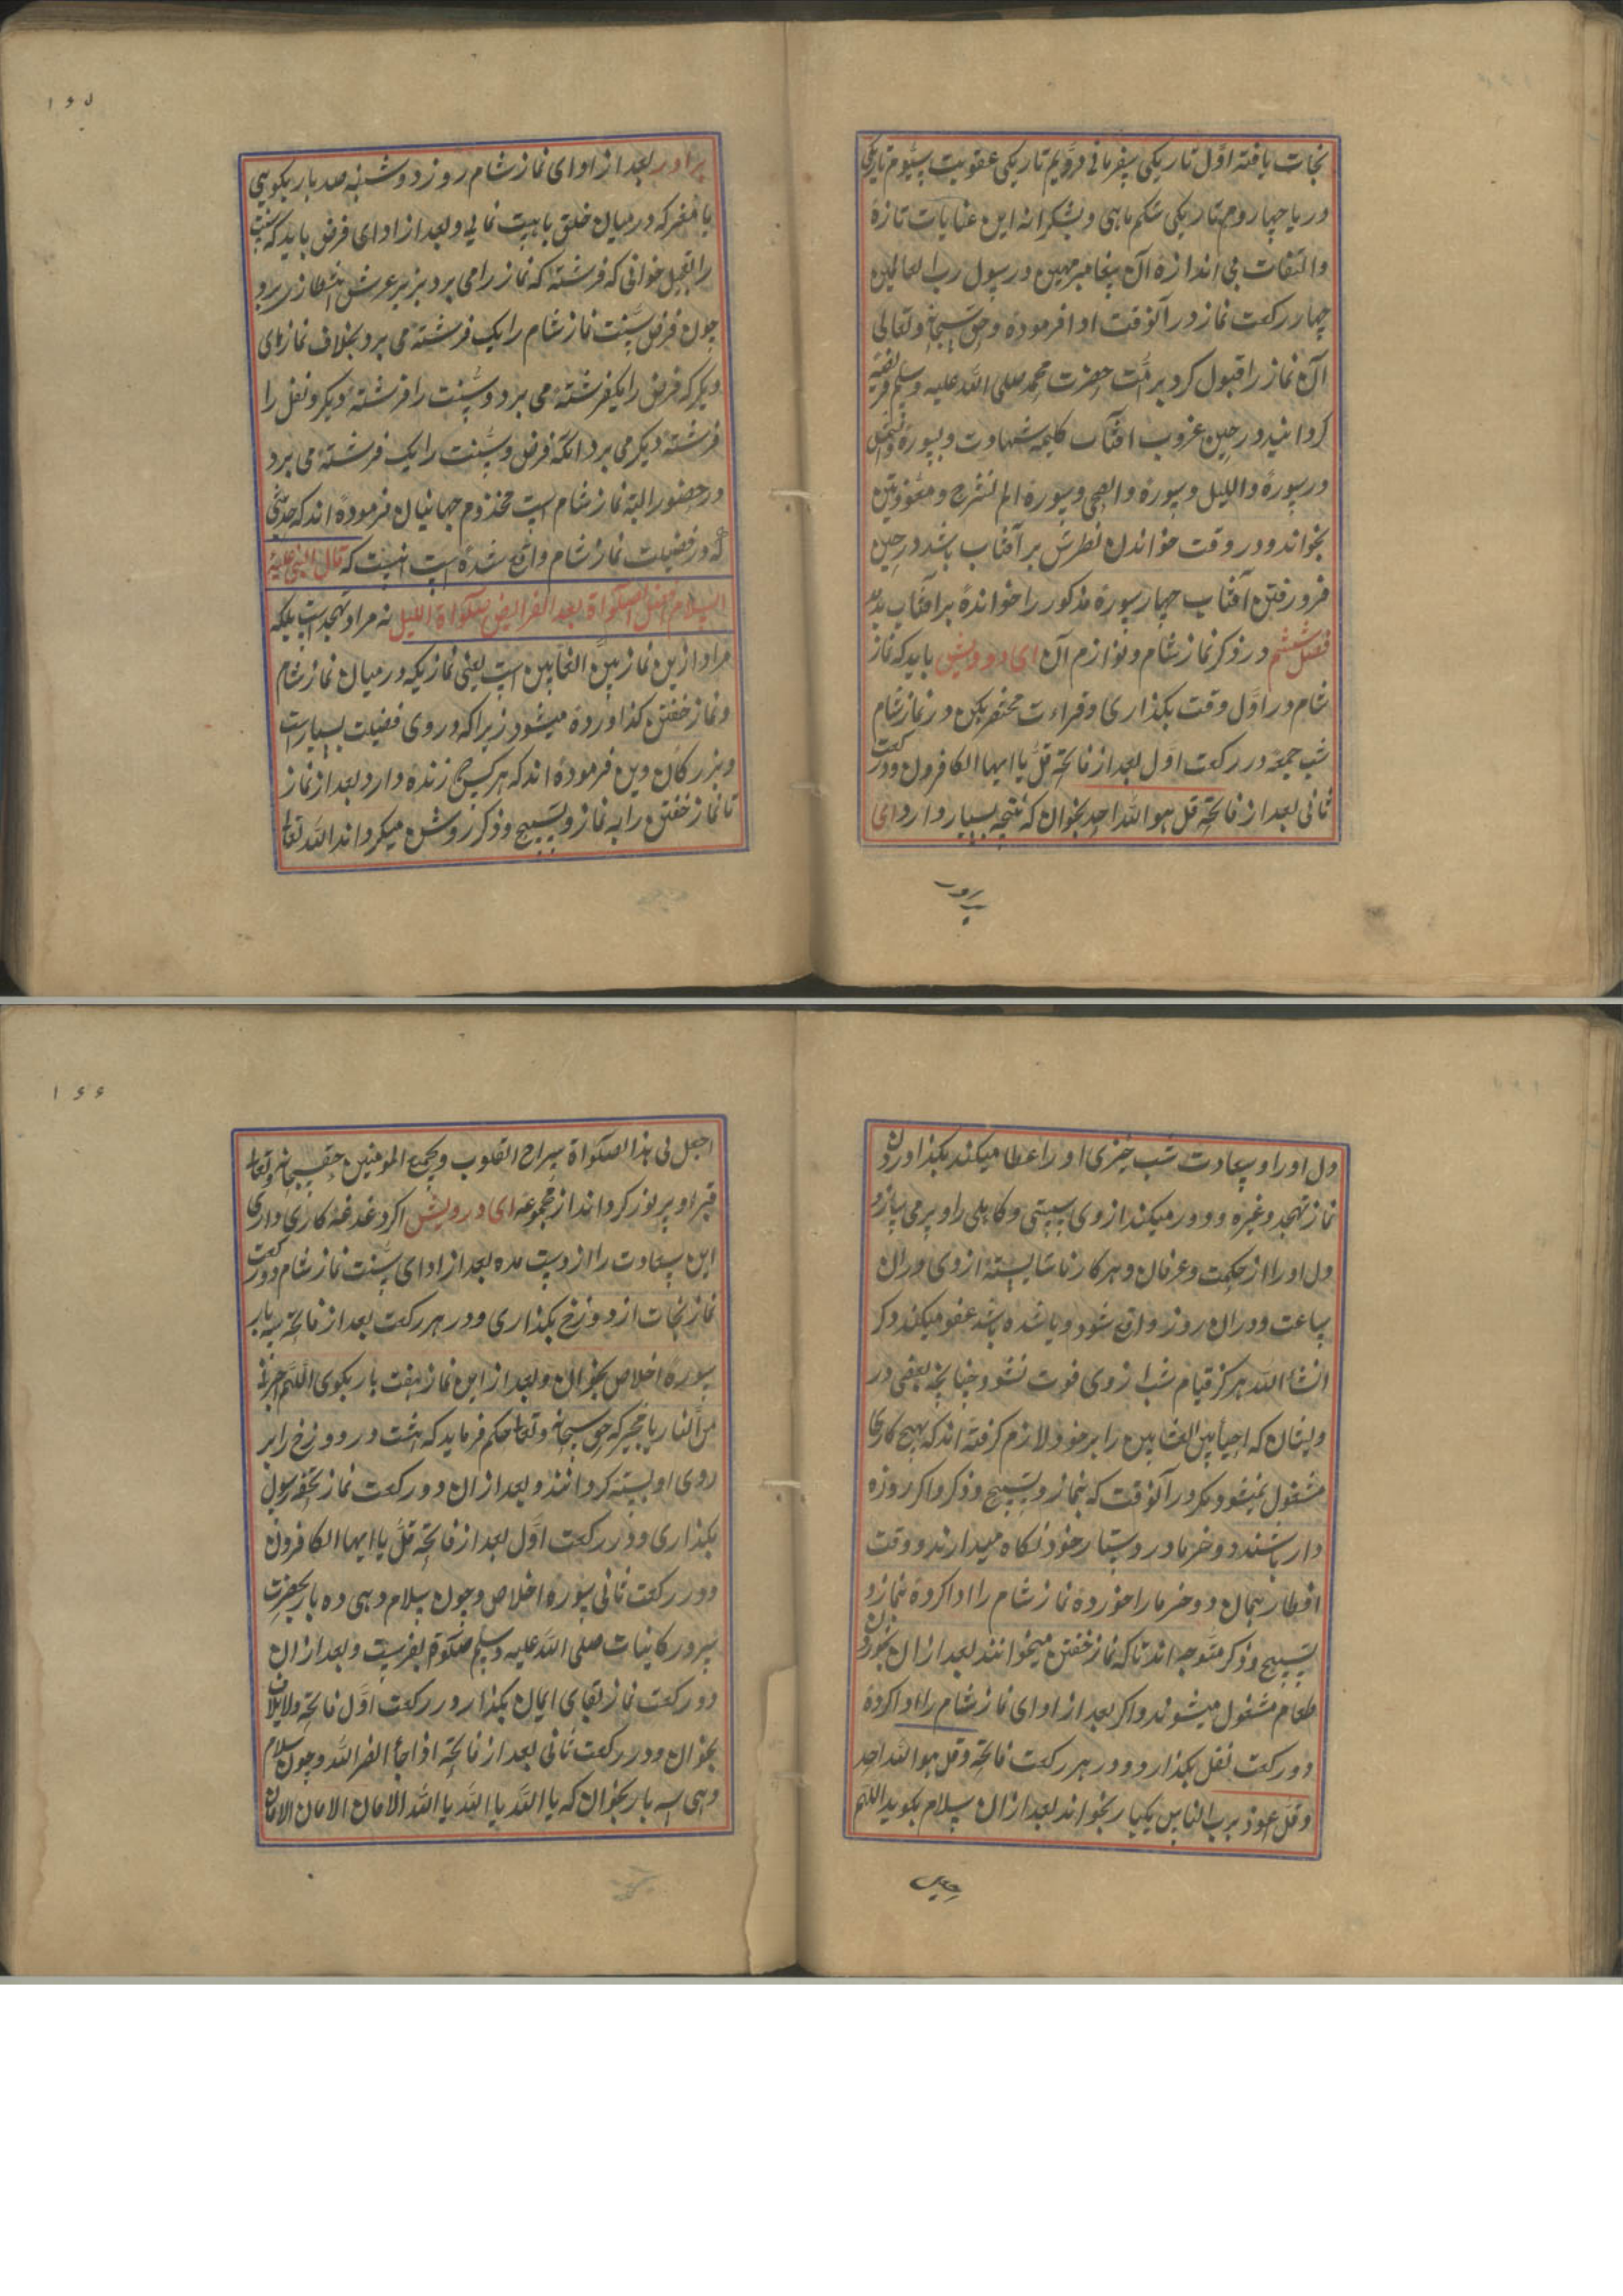 نجات یافته اول تاریکی سفر ماتی دویم تاریکی عقوبت سیوم تاریکی
دریا چهاروم تاریکی شکم ماهی و بشکرانه این عنایات تازه
و التفات بی اندازه آن پیغامبر مهین و رسول رب العالمین
چهار رکعت نماز در آنوقت ادا فرموده و حق سبحانه و تعالی
آن نماز را قبول کرد بر امت حضرت محمد صلی الله علیه وسلم فریضه
گردانید و در حین غروب افتاب کلمه شهادت و سوره والشمس
و سورة واللیل و سورة والضحی و سورة الم نشرح و معوذتین
بخواند و در وقت خواندن نظرش بر آفتاب باشد در حین
فرو رفتن آفتاب چهار سورة مذکور را خوانده بر افتاب بدمد
فصل ششم در ذکر نماز شام و لوازم آن ای درویش باید که نماز
شام در اول وقت بکذاری و قراءت مختصر بکن در نماز شام
شب جمعه در رکعت اول بعد از فاتحه قل یا ایها الکافرون و در رکعت
ثانی بعد از فاتحه قل هو الله احد بخوان که نتیجه بسیار دارد ای
برادر
۱۶۵
برادر بعد از ادای نماز شام روز دوشنبه صد بار بکویی
یا مغر که در میان خلق با هیبت نمائی و بعد از ادای فرض باید که سنت
را بتعجیل خوانی که فرشته که نماز را می برد بزیر عرش انتظار برو
چون فرض سنت نماز شام را یک فرشته می برد بخلاف نمازهای
دیکر که فرض را یکفرشته می برد و سنت را فرشته دیکر و نفل را
فرشته دیکر می برد انکه فرض و سنت را یک فرشته می برد
در حضور البته نماز شام است مخدوم جهانیان فرموده اند که حدیثی
که در فضیلت نماز شام واقع شده است اینست که قال النبی علیه
السلام افضل الصلواة بعد الفرایض صلواة اللیل نه مراد تهجد است بلکه
مراد ازین نماز بین العشایین است یعنی نمازیکه در میان نماز شام
و نماز خفتن کذاورده میشود زیرا که در وی فضیلت بسیار است
و بزرکان دین فرموده اند که هر کسی زنده دارد بعد از نماز
تا نماز خفتن را به نماز و تسبیح و ذکر روشن میکرداند الله تعالی
دل او را و سعادت شب خیزی او را عطا میکند بکذاوردن
نماز تهجد و غیره و دور میکند از وی سستی و کاهلی را و پر می سازد
دل او را از حکمت و عرفان و هر کار ناشایسته از وی دران
ساعت و دران روز واقع شود و یا شده باشد عفو میکند و کر
انشا الله هرکز قیام شب از وی فوت نشود چنانچه بعضی در
ویشان که احیا بین العشایین را بر خود لازم کرفته اند که بهیچ کاری
مشغول نمیشوند مکر در آنوقت که بنماز و تسبیح و ذکر و اکر روزه
دار باشند دو خرما در دستار خود نکاه میدارند و وقت
افطار همان دو خرما را خورده نماز شام را ادا کرده بنماز و
تسبیح و ذکر متوجه اند تا که نماز خفتن میخوانند بعد از ان بخوردن
طعام مشغول میشوند و اکر بعد از ادای نماز شام را ادا کرده
دو رکعت نفل بکذارد و در هر رکعت فاتحه و قل هو الله احد
و قل اعوذ برب الناس یکبار بخواند بعد از ان سلام بکوید اللهم
اجعل
۱۶۶
اجعل لی هذا الصلواة سراج القلوب و بجمیع المومنین حقسبحانه و تعالی
قبر او پر نور کرداند از مجموعه ای درویش اکر دغدغه کاری داری
این سعادت را از دست مده بعد از ادای سنت نماز شام دو رکعت
نماز نجات از دوزخ بکذاری و در هر رکعت بعد از فاتحه سه بار
سوره اخلاص بخوان و بعد از این نماز هفت بار بکوی اللهم اجرنا
من النار یا مجیر که حق سبحانه و تعالی حکم فرماید که هشت در دوزخ را بر
روی او بسته کردانند و بعد از ان دو رکعت نماز تحفه رسول
بکذاری و در رکعت اول بعد از فاتحه قل یا ایها الکافرون
و در رکعت ثانی سوره اخلاص و چون سلام دهی ده بار بحضرت
سرور کاینات صلی الله علیه وسلم صلوة بفرست و بعد از ان
دو رکعت نماز بقای ایمان بکذار در رکعت اول فاتحه و لایلاف
بخوان و در رکعت ثانی بعد از فاتحه اذا جاء نصر الله و چون سلام
دهی سه بار بخوان که یا الله یا الله یا الله الامان الامان الامان